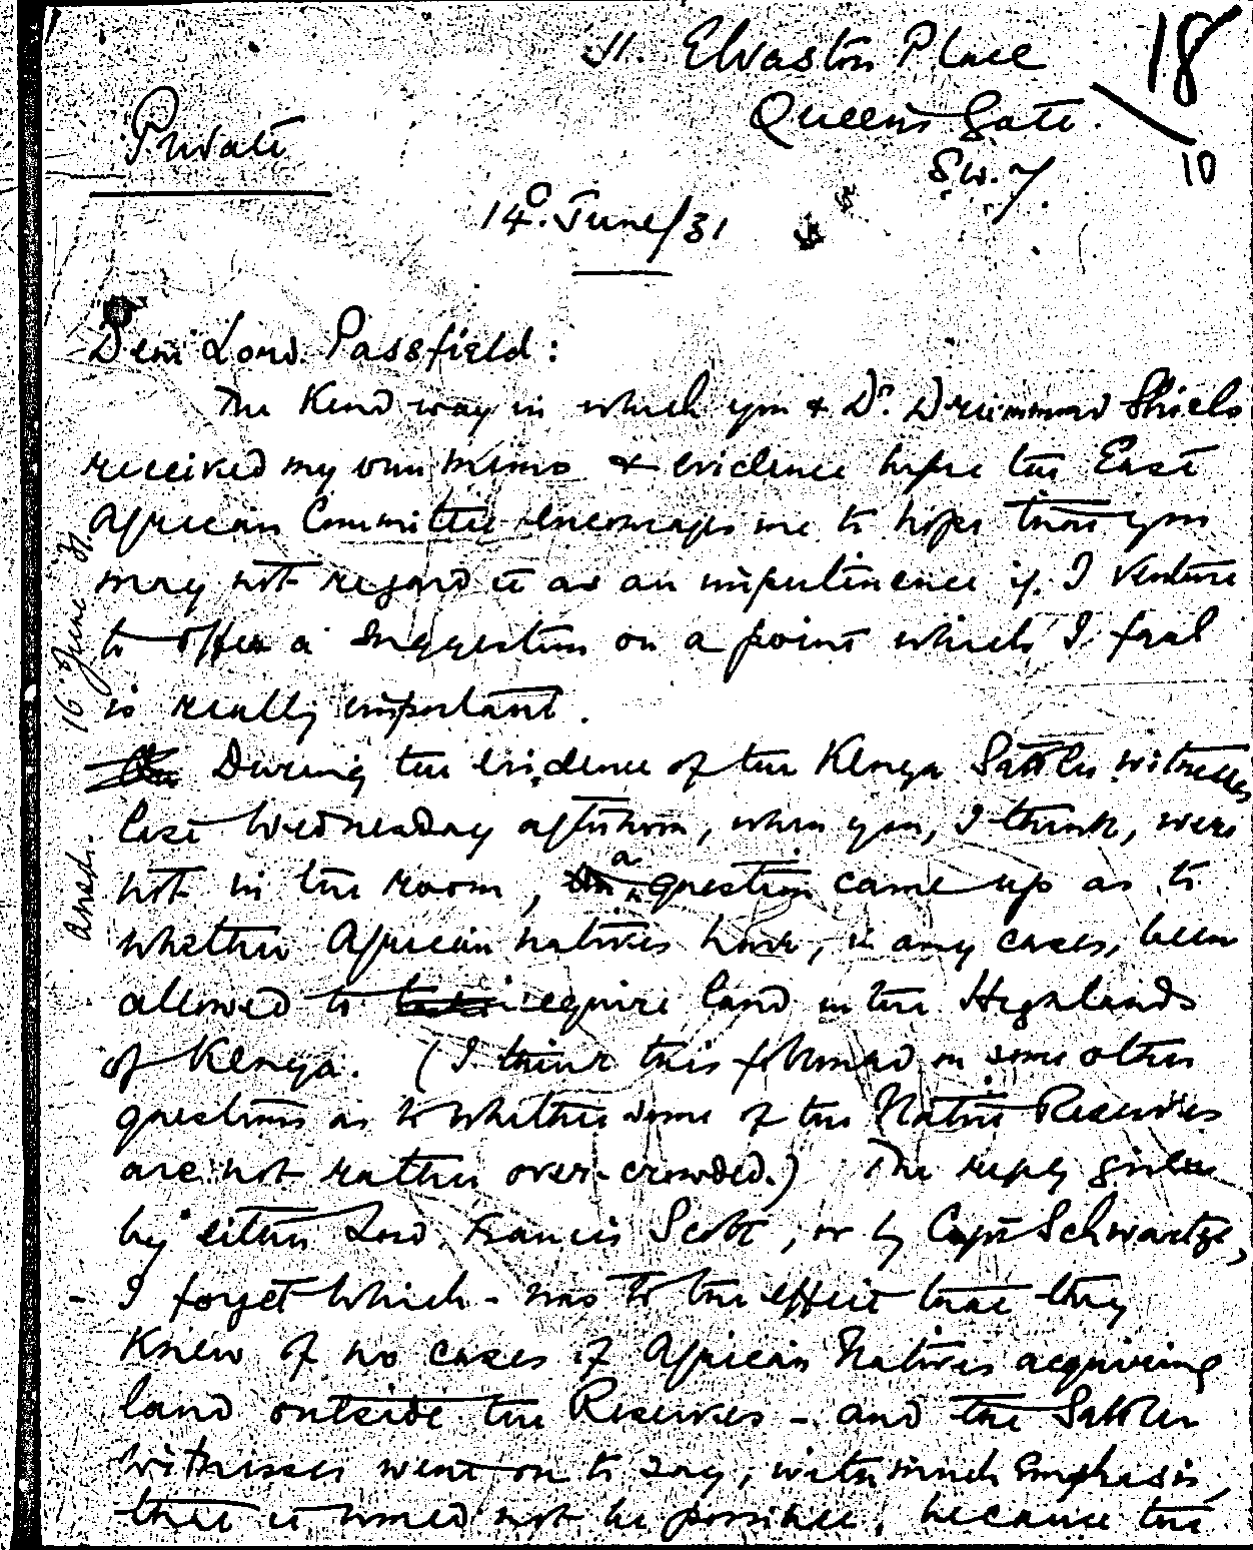 11. Elvaston Place
Queen's Gate.
S.W.7.
18
10
Private
14. June/31
Dear Lord Passfield:
The kind way in which you & Dr. Drummond Shiels
received my own memo & evidence before the East
African Committee encourages me to hope that you
may not regard it as an impertinence if I venture
to offer a suggestion on a point which I feel
is really important.
During the evidence of the Kenya Settler witnesses
last Wednesday afternoon, when you, I think, were
not in the room, a question came up as to
whether African natives have, in any cases, been
allowed to acquire land in the Highlands
of Kenya. (I think this followed on some other
questions as to whether some of the Native Reserves
are not rather over-crowded.) The reply given
by either Lord Francis Scott, or by Capt Schwartze,
- I forget which - was to the effect that they
knew of no cases of African Natives acquiring
land outside the Reserves - and the Settler
witnesses went on to say, with much emphasis,
that it would not be possible, because the
Ansd. 16 June 31.